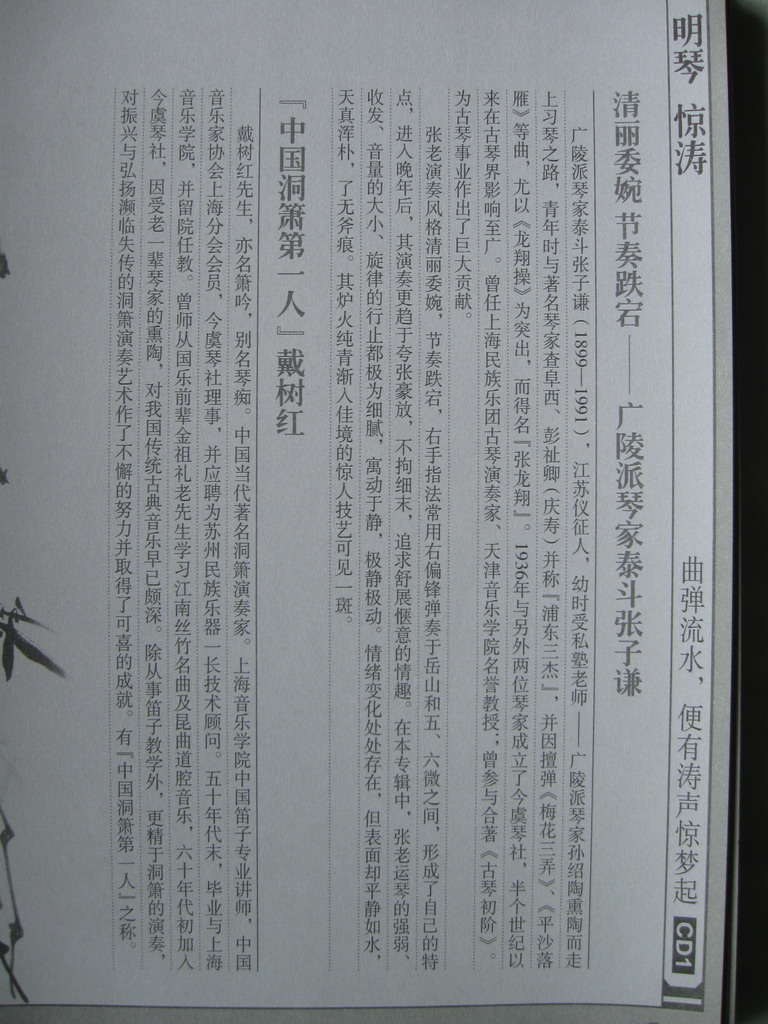 明琴 惊涛
曲弹流水，便有涛声惊梦起 CD1
清丽委婉 节奏跌宕——广陵派琴家泰斗张子谦
广陵派琴家泰斗张子谦（1899—1991），江苏仪征人，幼时受私塾老师——广陵派琴家孙绍陶熏陶而走
上习琴之路，青年时与著名琴家查阜西、彭祉卿（庆寿）并称『浦东三杰』，并因擅弹《梅花三弄》、《平沙落
雁》等曲，尤以《龙翔操》为突出，而得名『张龙翔』。1936年与另外两位琴家成立了今虞琴社，半个世纪以
来在古琴界影响至广。曾任上海民族乐团古琴演奏家、天津音乐学院名誉教授；曾参与合著《古琴初阶》。
为古琴事业作出了巨大贡献。
张老演奏风格清丽委婉，节奏跌宕，右手指法常用右偏锋弹奏于岳山和五、六微之间，形成了自己的特
点，进入晚年后，其演奏更趋于夸张豪放，不拘细末，追求舒展惬意的情趣。在本专辑中，张老运琴的强弱、
收发、音量的大小、旋律的行止都极为细腻，寓动于静，极静极动。情绪变化处处存在，但表面却平静如水，
天真浑朴，了无斧痕。其炉火纯青渐入佳境的惊人技艺可见一斑。
『中国洞箫第一人』戴树红
戴树红先生，亦名箫吟，别名琴痴。中国当代著名洞箫演奏家。上海音乐学院中国笛子专业讲师，中国
音乐家协会上海分会会员，今虞琴社理事，并应聘为苏州民族乐器一长技术顾问。五十年代末，毕业与上海
音乐学院，并留院任教。曾师从国乐前辈金祖礼老先生学习江南丝竹名曲及昆曲道腔音乐，六十年代初加入
今虞琴社，因受老一辈琴家的熏陶，对我国传统古典音乐早已颇深。除从事笛子教学外，更精于洞箫的演奏，
对振兴与弘扬濒临失传的洞箫演奏艺术作了不懈的努力并取得了可喜的成就。有『中国洞箫第一人』之称。